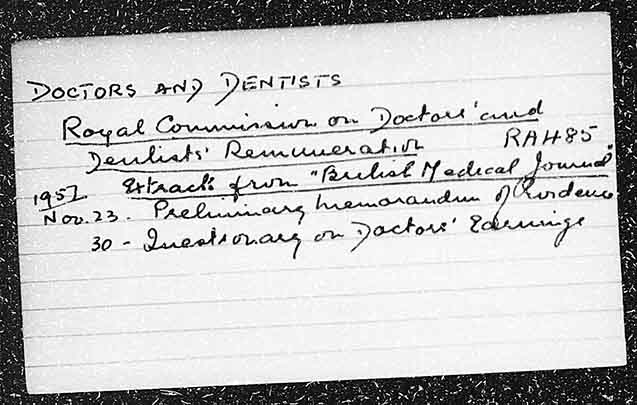 DOCTORS AND DENTISTS
Royal Commission on Doctors' and
Dentists' Remuneration RAH85
1957 Extracts from "British Medical Journal"
Nov. 23. Preliminary Memorandum of Evidence
30 - Questionary on Doctors' Earnings